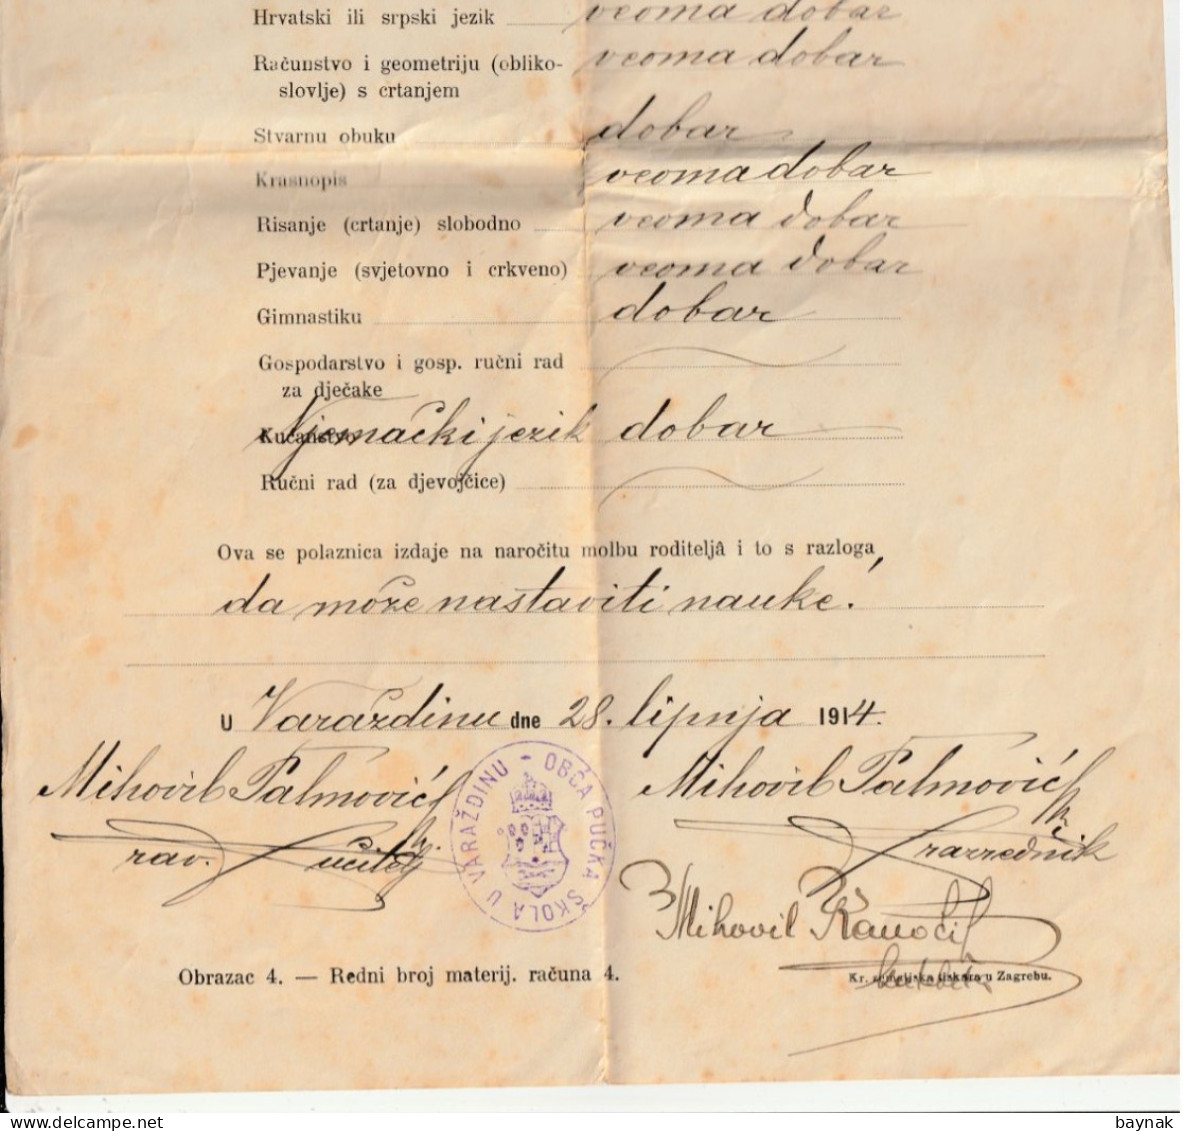 Hrvatski ili srpski jezik veoma dobar
Računstvo i geometriju (obliko- veoma dobar
slovlje) s crtanjem
Stvarnu obuku dobar
Krasnopis veoma dobar
Risanje (crtanje) slobodno veoma dobar
Pjevanje (svjetovno i crkveno) veoma dobar
Gimnastiku dobar
Gospodarstvo i gosp. ručni rad
za dječake
Kućanstvo Njemački jezik dobar
Ručni rad (za djevojčice)
Ova se polaznica izdaje na naročitu molbu roditeljâ i to s razloga,
da može nastaviti nauke.
U Varaždinu dne 28. lipnja 1914.
Mihovil Palmović Mihovil Palmović
rav. učitelj razrednik
OBĆA PUČKA ŠKOLA U VARAŽDINU
Mihovil
Obrazac 4. — Redni broj materij. računa 4. Kr. zemaljska tiskara u Zagrebu.
baynak